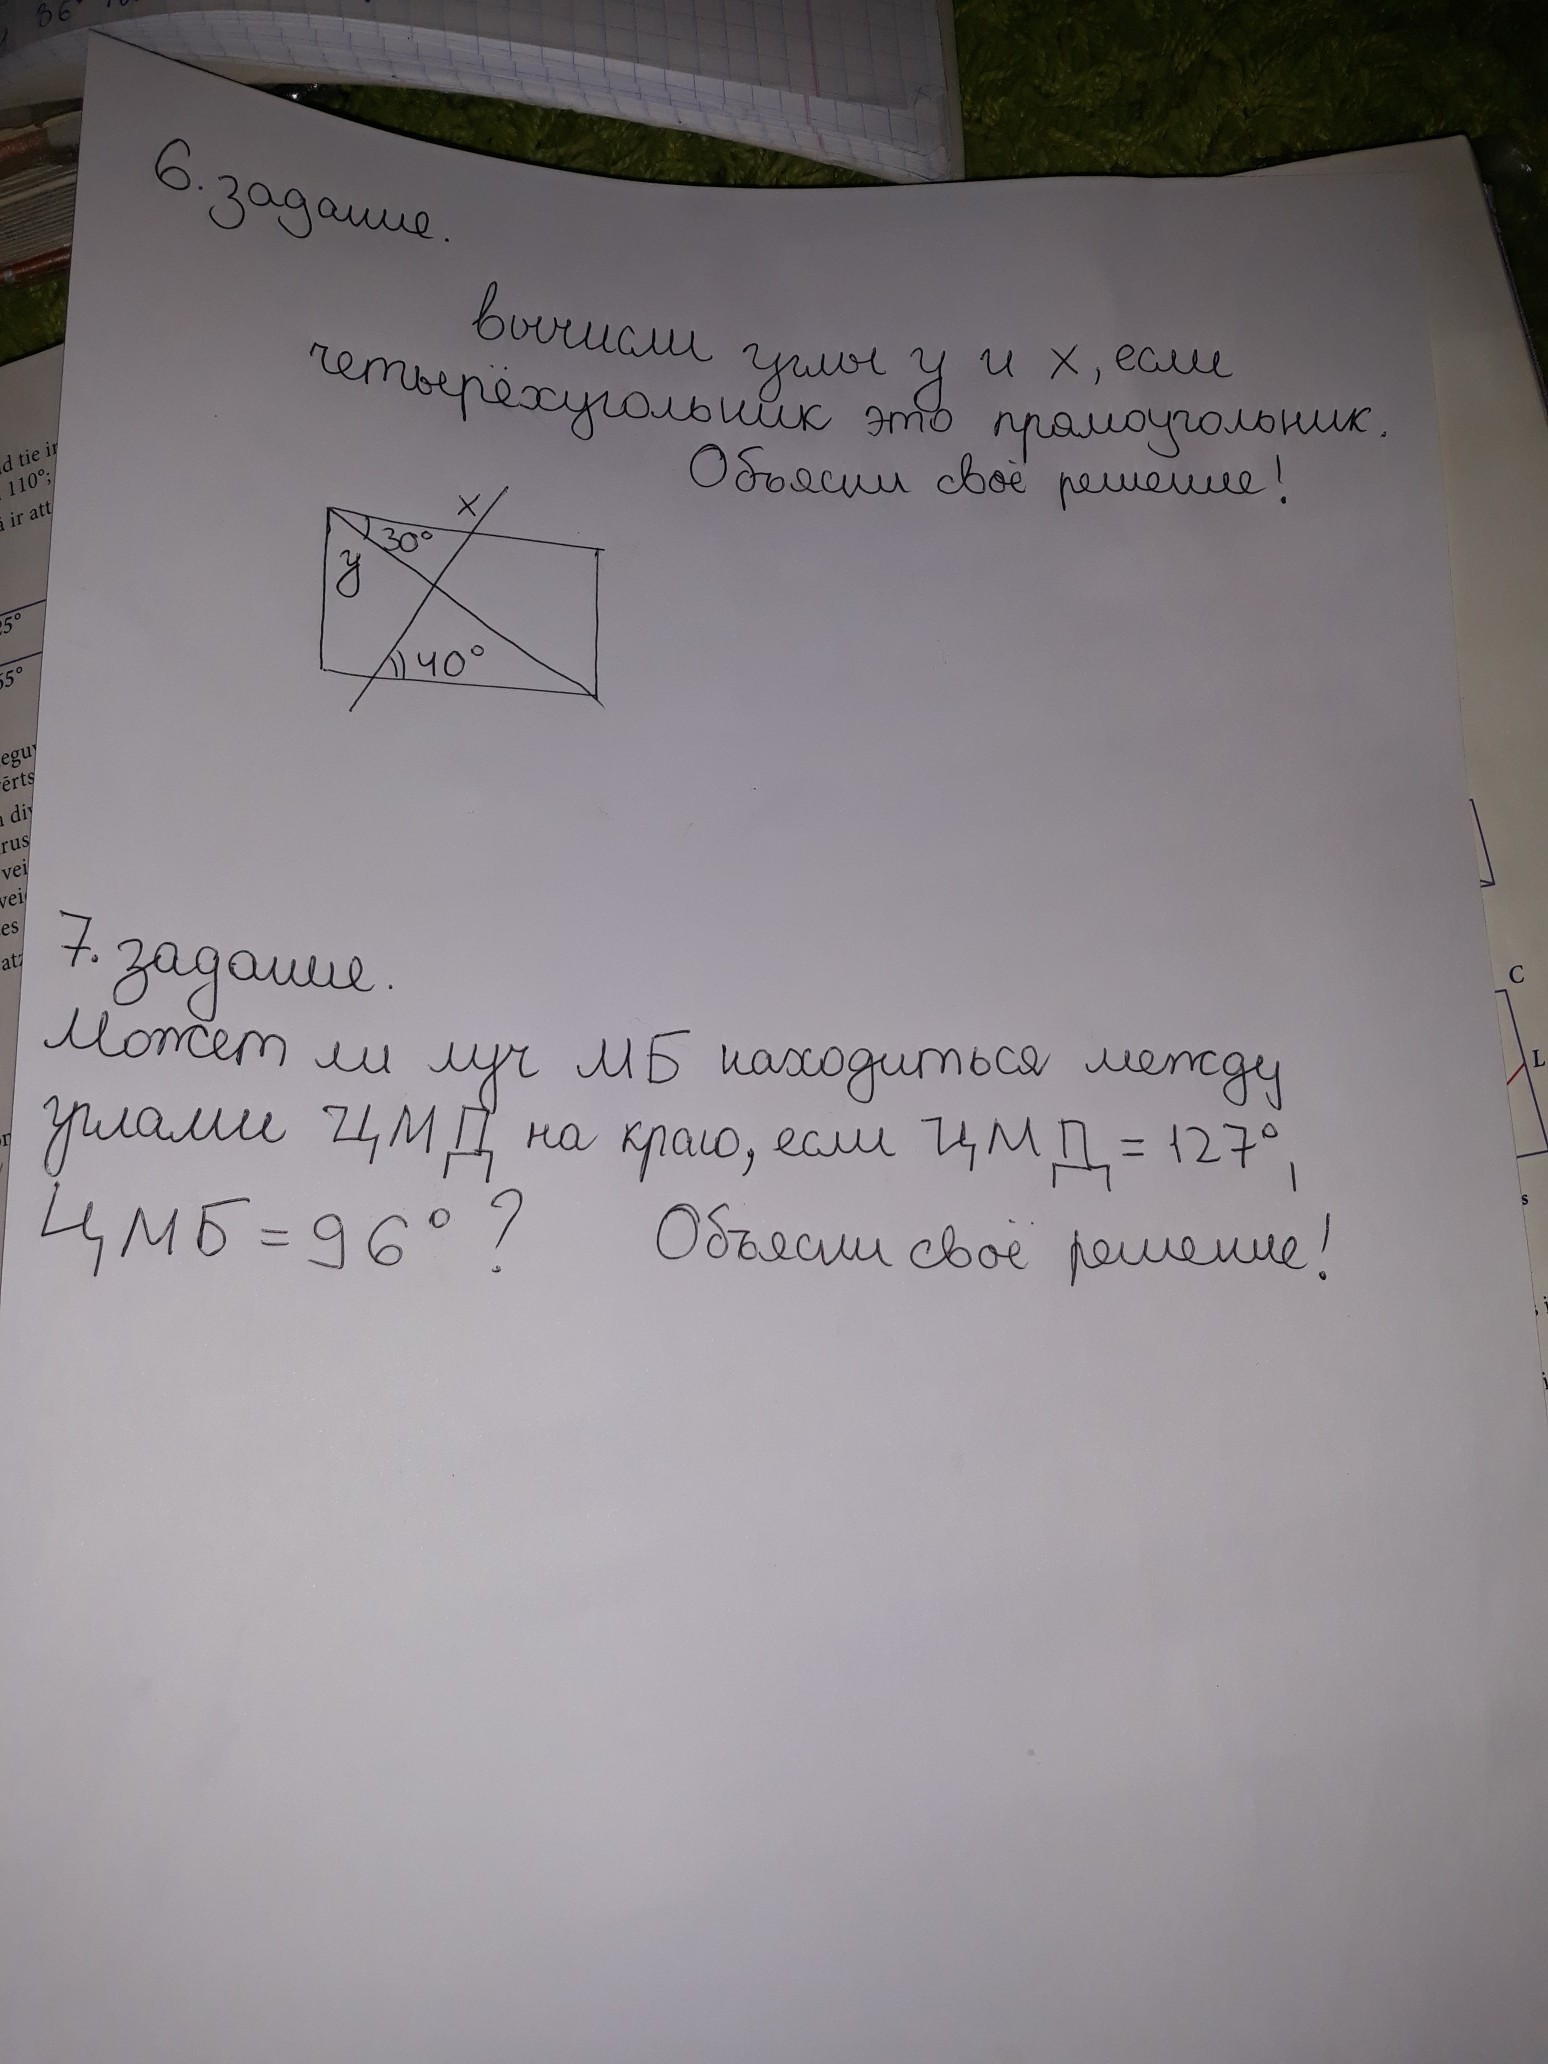 6. задание.
вычисли углы у и х, если
четырёхугольник это прямоугольник.
Объясни своё решение!
х
30°
у
40°
7. задание.
Может ли луч МБ находиться между
углами ЦМД на краю, если ЦМД = 127°,
ЦМБ = 96° ? Объясни своё решение!
110°;
ir att
25°
55°
ērts
C
L